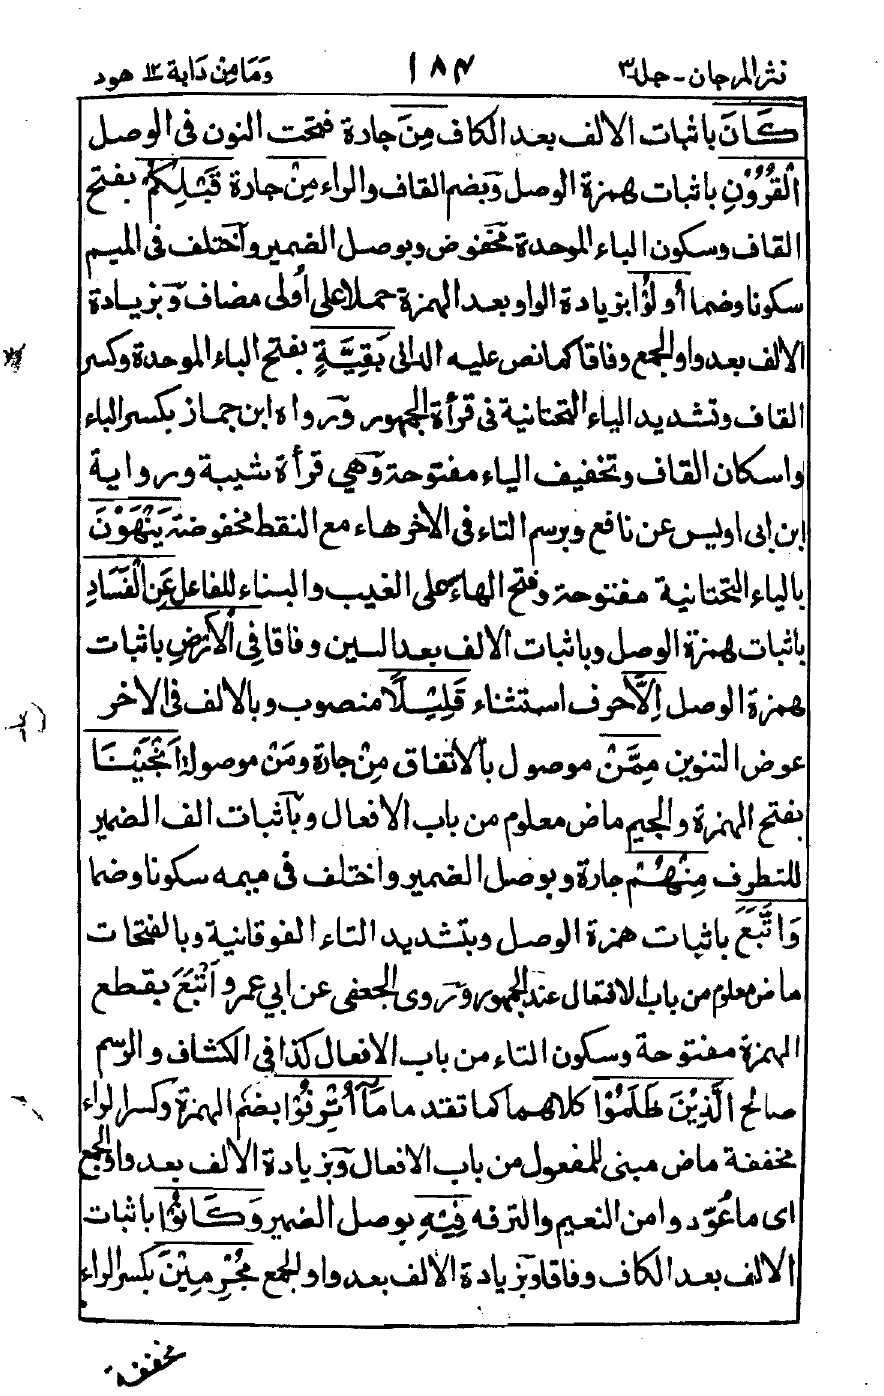 نثر المرجان - جلد٣ ١٨٤ وَمَا مِنْ دَابة ١٢ هود
كَانَ باثبات الالف بعد الكاف مِنَ جارة فتحت النون فى الوصل
الْقُرُوْنِ باثبات همزة الوصل وبضم القاف والراء مِنْ جارة قَبْلِكُمْ بفتح
القاف وسكون الباء الموحدة مخفوض وبوصل الضمير واختلف فى الميم
سكونا وضما أُولُوْا بزيادة الواو بعد الهمزة حملا على أُولى مضاف وبزيادة
الالف بعد واو الجمع وفاقا كما نص عليه الدانى بَقِيَّةٍ بفتح الباء الموحدة وكسر
القاف وتشديد الياء التحتانية فى قرأة الجمهور ورواه ابن جماز بكسر الباء
واسكان القاف وتخفيف الياء مفتوحة وهي قرأة شيبة ورواية
ابن ابى اويس عن نافع وبرسم التاء فى الاخر هاء مع النقط مخفوضة يَنْهَوْنَ
بالياء التحتانية مفتوحة وفتح الهاء على الغيب والبناء للفاعل عَنِ الْفَسَادِ
باثبات همزة الوصل وباثبات الالف بعد السين وفاقا فِى الْاَرْضِ باثبات
همزة الوصل اِلَّا حرف استثناء قَلِيْلًا منصوب وبالالف فى الاخر
عوض التنوين مِمَّنْ موصول بالاتفاق مِنْ جارة ومَنْ موصولة اَنْجَيْنَا
بفتح الهمزة والجيم ماض معلوم من باب الافعال وبآثبات الف الضمير
للتطرف مِنْهُمْ جارة وبوصل الضمير واختلف فى ميمه سكونا وضما
وَاتَّبَعَ باثبات همزة الوصل وبتشديد التاء الفوقانية وبالفتحات
ماض معلوم من باب الافتعال عند الجمهور وروى الجعفى عن ابي عمرو اَتْبَعَ بقطع
الهمزة مفتوحة وسكون التاء من باب الافعال كذا فى الكشاف والرسم
صالح الَّذِيْنَ ظَلَمُوْا كلاهما كما تقدما مَآ اُتْرِفُوْا بضم الهمزة وكسر الراء
مخففة ماض مبنى للمفعول من باب الافعال وبزيادة الالف بعد واو الجمع
اى ما عُوّدوا من النعيم والترفه فِيْهِ بوصل الضمير وَكَانُوْا باثبات
الالف بعد الكاف وفاقا وبزيادة الالف بعد واو الجمع مُجْرِمِيْنَ بكسر الراء
مخففة